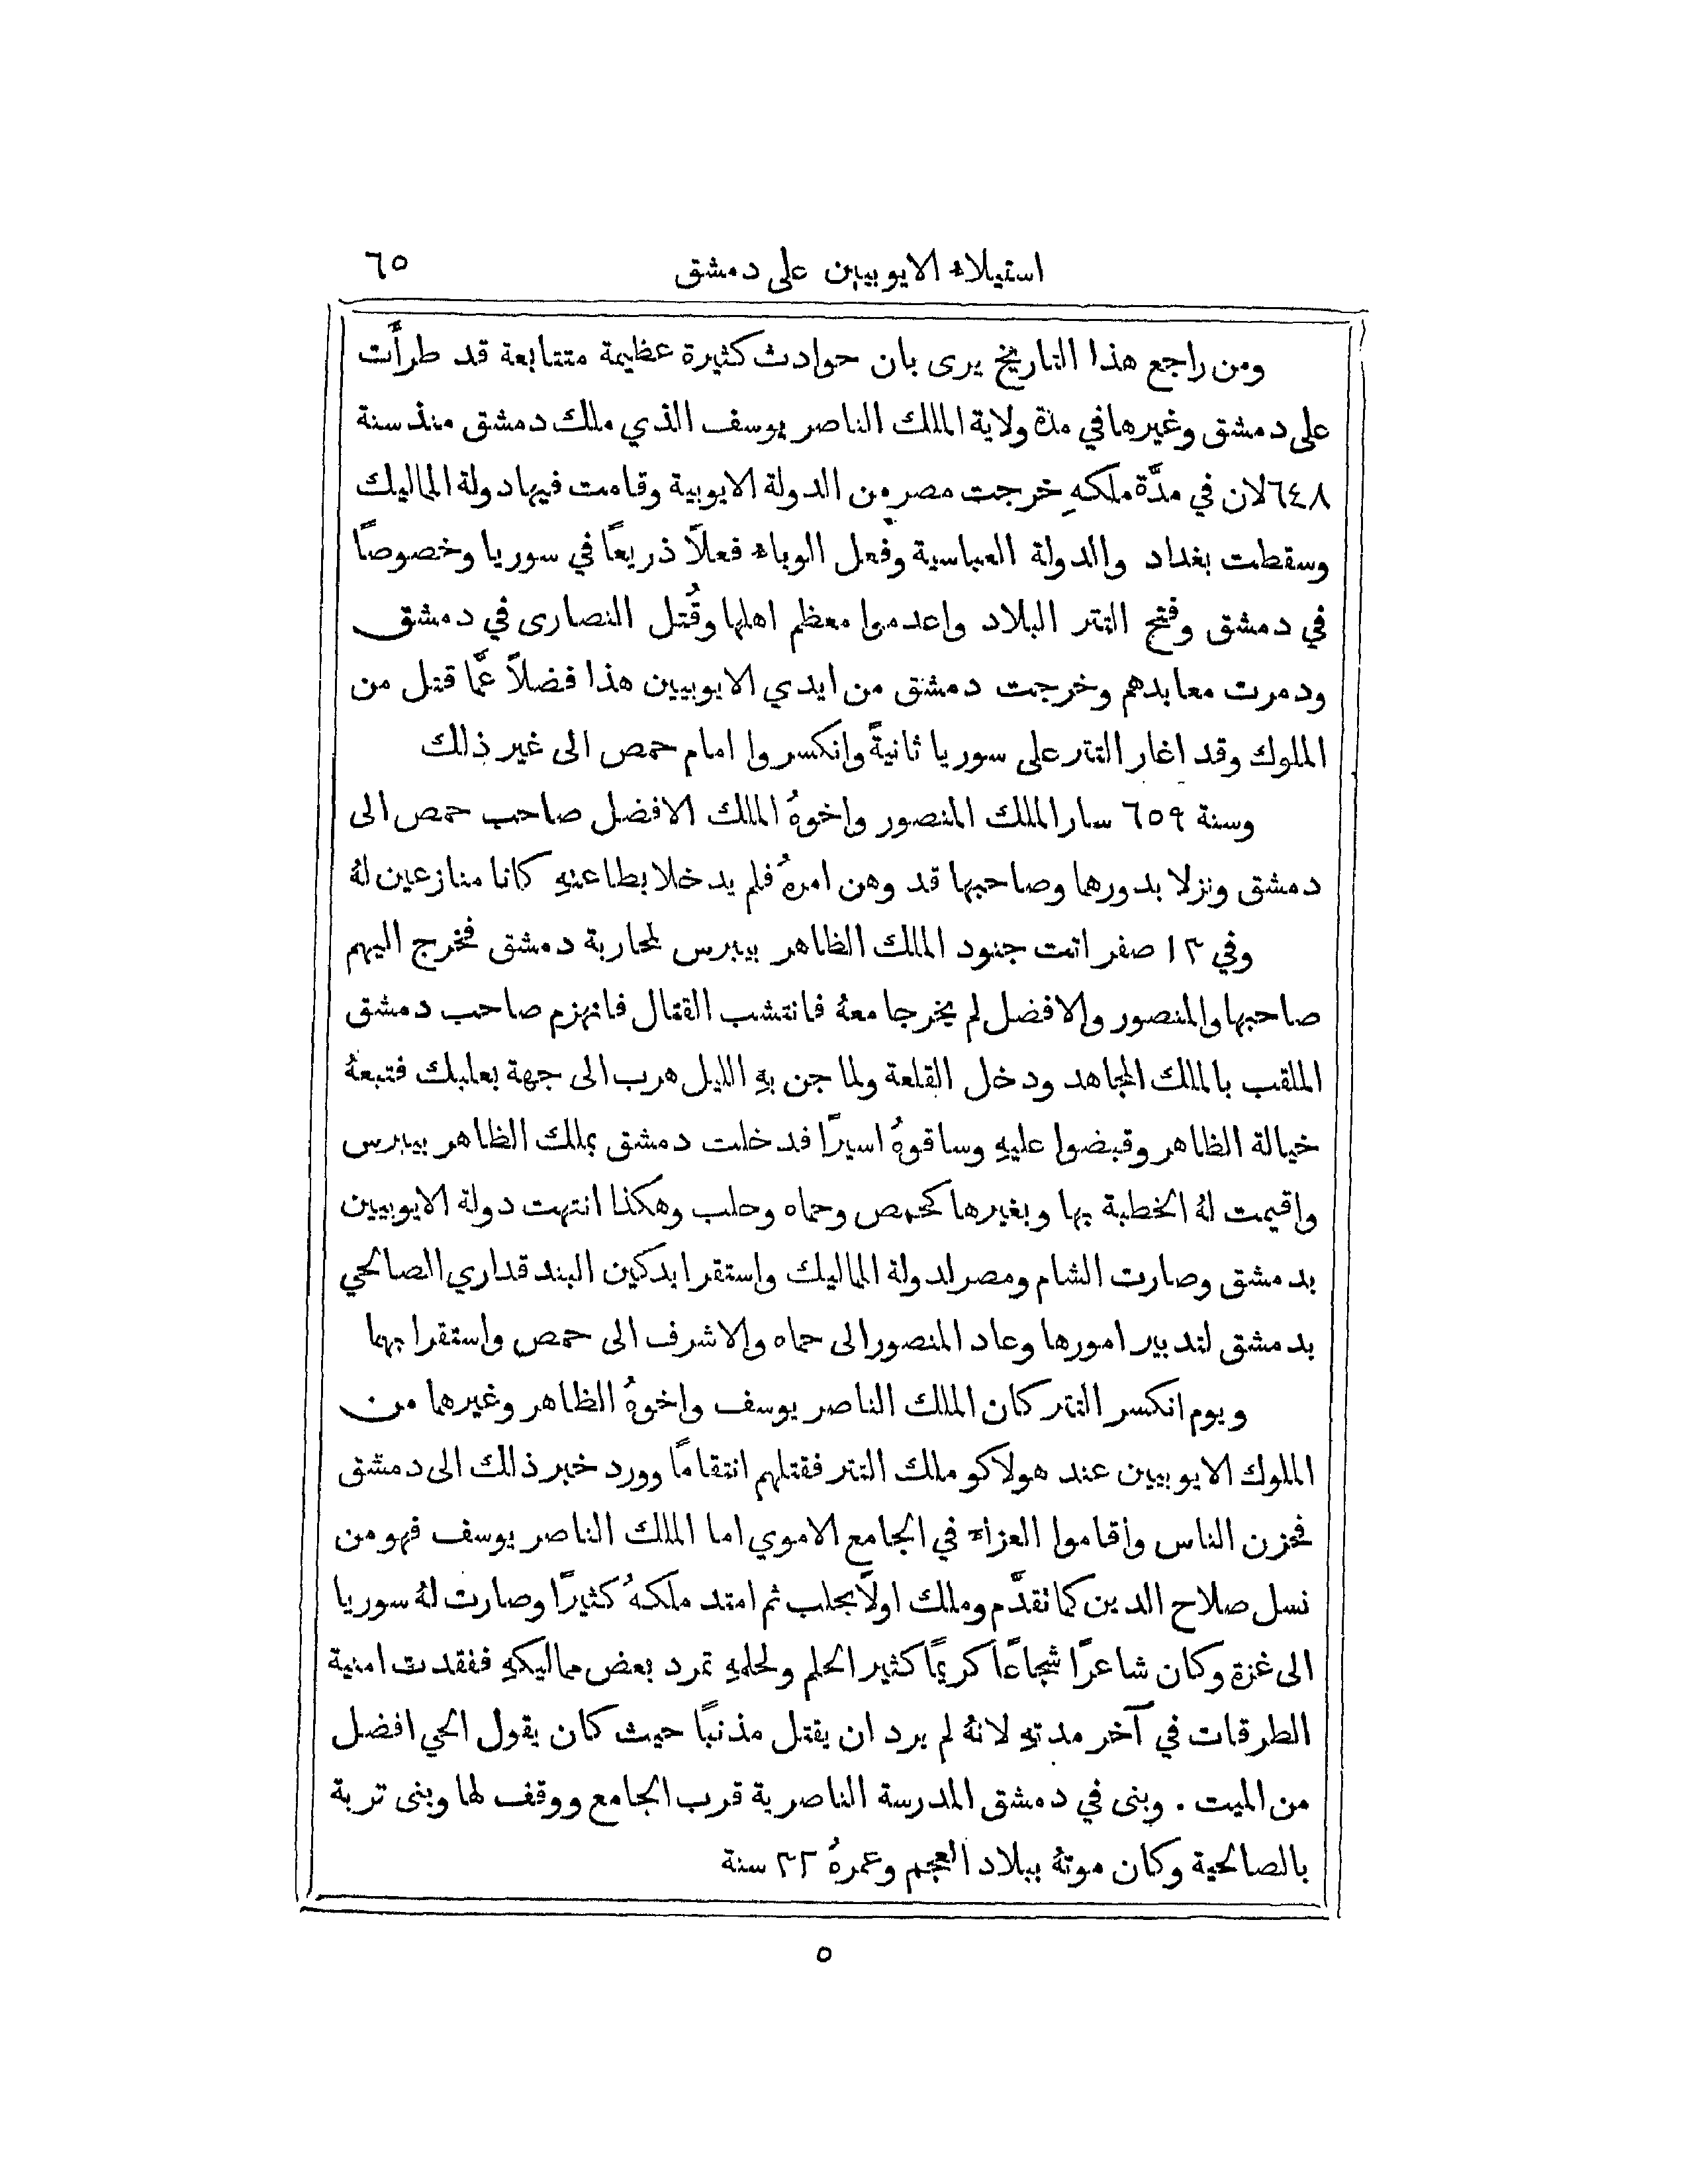 استيلاء الايوبيين على دمشق ٦٥
ومن راجع هذا التاريخ يرى بان حوادث كثيرة عظيمة متتابعة قد طرأَت
على دمشق وغيرها في مدة ولاية الملك الناصر يوسف الذي ملك دمشق منذ سنة
٦٤٨ لان في مدَّة ملكهِ خرجت مصر من الدولة الايوبية وقامت فيها دولة المماليك
وسقطت بغداد والدولة العباسية وفعل الوباء فعلاً ذريعاً في سوريا وخصوصاً
في دمشق وفتح التتر البلاد واعدموا معظم اهلها وقُتل النصارى في دمشق
ودمرت معابدهم وخرجت دمشق من ايدي الايوبيين هذا فضلاً عمَّا قتل من
الملوك وقد اغار التتر على سوريا ثانيةً وانكسروا امام حمص الى غير ذلك
وسنة ٦٥٩ سار الملك المنصور واخوهُ الملك الافضل صاحب حمص الى
دمشق ونزلا بدورهما وصاحبها قد وهن امرهُ فلم يدخلا بطاعتهِ كانا منازعين لهُ
وفي ١٣ صفر اتت جنود الملك الظاهر بيبرس لمحاربة دمشق فخرج اليهم
صاحبها والمنصور والافضل لم يخرجا معهُ فانتشب القتال فانهزم صاحب دمشق
الملقب بالملك المجاهد ودخل القلعة ولما جن بهِ الليل هرب الى جهة بعلبك فتبعهُ
خيالة الظاهر وقبضوا عليهِ وساقوهُ اسيرًا فدخلت دمشق بملك الظاهر بيبرس
واقيمت لهُ الخطبة بها وبغيرها كحمص وحماه وحلب وهكذا انتهت دولة الايوبيين
بدمشق وصارت الشام ومصر لدولة المماليك واستقر ابدكين البندقداري الصالحي
بدمشق لتدبير امورها وعاد المنصور الى حماه والاشرف الى حمص واستقرا بهما
ويوم انكسر التتر كان الملك الناصر يوسف واخوهُ الظاهر وغيرهما من
الملوك الايوبيين عند هولاكو ملك التتر فقتلهم انتقامًا وورد خبر ذلك الى دمشق
فحزن الناس وأقاموا العزاء في الجامع الاموي اما الملك الناصر يوسف فهو من
نسل صلاح الدين كما تقدَّم وملك اولاً بحلب ثم امتد ملكهُ كثيرًا وصارت لهُ سوريا
الى غزة وكان شاعرًا شجاعًا كريمًا كثير الحلم ولحلمهِ تمرد بعض مماليكهِ ففقدت امنية
الطرقات في آخر مدتهِ لانهُ لم يرد ان يقتل مذنبًا حيث كان يقول الحي افضل
من الميت . وبنى في دمشق المدرسة الناصرية قرب الجامع ووقف لها وبنى تربة
بالصالحية وكان موتهُ ببلاد العجم وعمرهُ ٣٢ سنة
٥